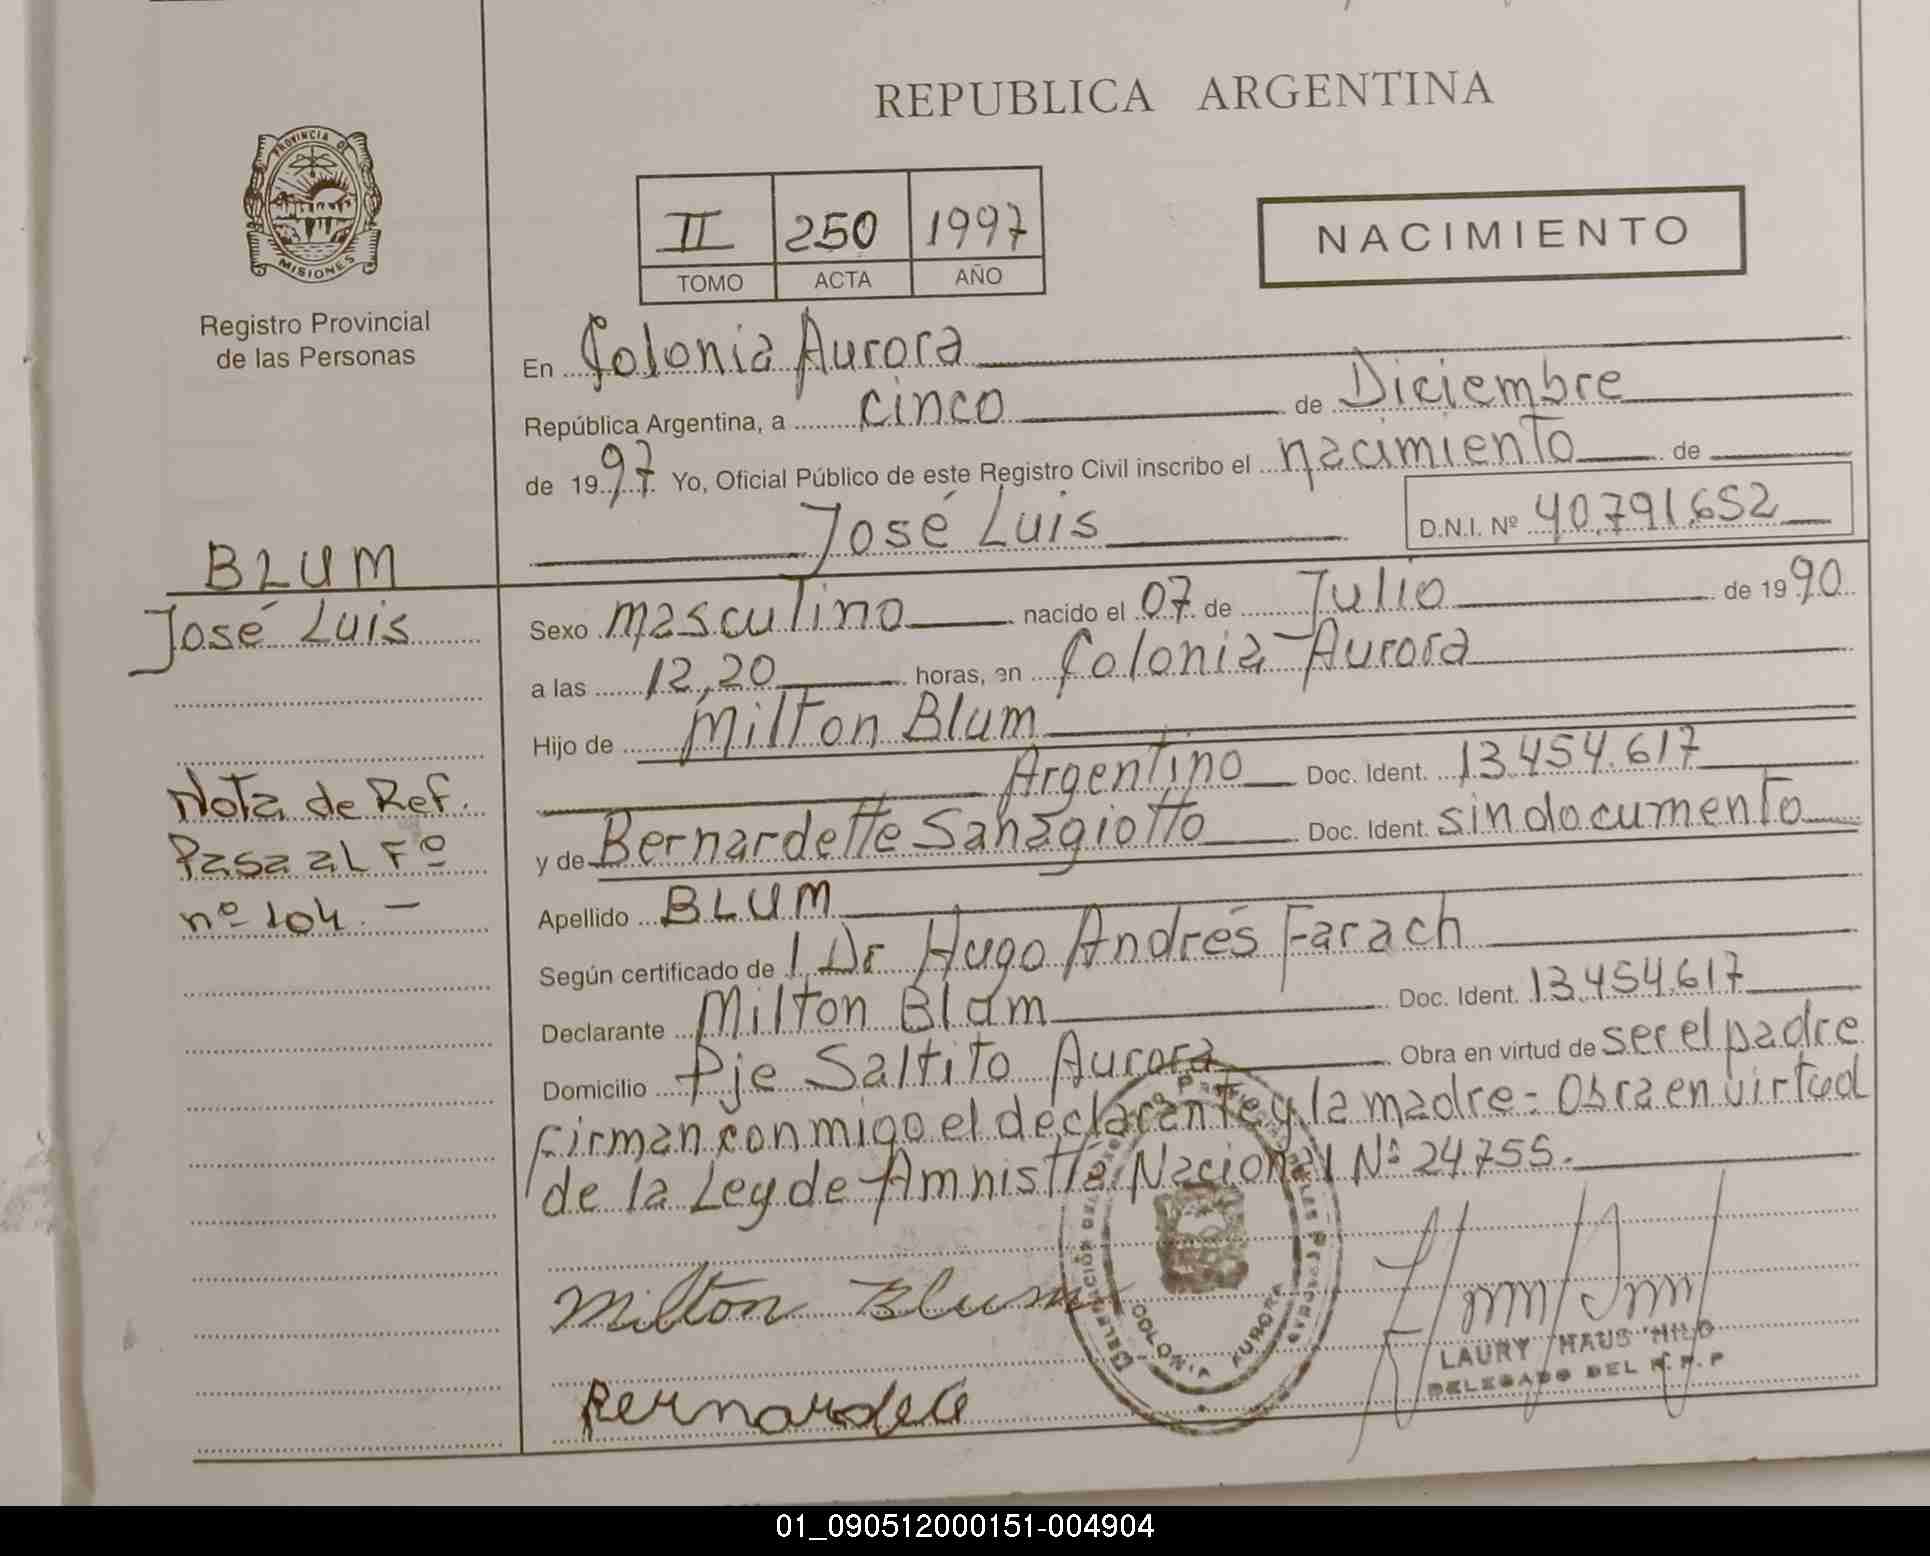 REPUBLICA ARGENTINA
PROVINCIA DE
MISIONES
Registro Provincial
de las Personas
II 250 1997
TOMO ACTA AÑO
NACIMIENTO
En Colonia Aurora
República Argentina, a cinco de Diciembre
de 1997 Yo, Oficial Público de este Registro Civil inscribo el nacimiento de
José Luis D.N.I. Nº 40.791.652
BLUM
José Luis
Nota de Ref.
Pasa al Fº
nº 104. -
Sexo masculino nacido el 07 de Julio de 1990
a las 12,20 horas, en Colonia Aurora
Hijo de Milton Blum
Argentino Doc. Ident. 13.454.617
y de Bernardette Sanagiotto Doc. Ident. sin documento
Apellido BLUM
Según certificado de l Dr Hugo Andrés Farach
Declarante Milton Blum Doc. Ident. 13.454.617
Domicilio Pje Saltito Aurora Obra en virtud de ser el padre
firman conmigo el declarante y la madre = Obra en virtud
de la Ley de Amnistía Nacional Nº 24.755.
Milton Blum
Bernardete
COLONIA AURORA
LAURY HAUS HILD
DELEGADO DEL R.P.P
01_090512000151-004904